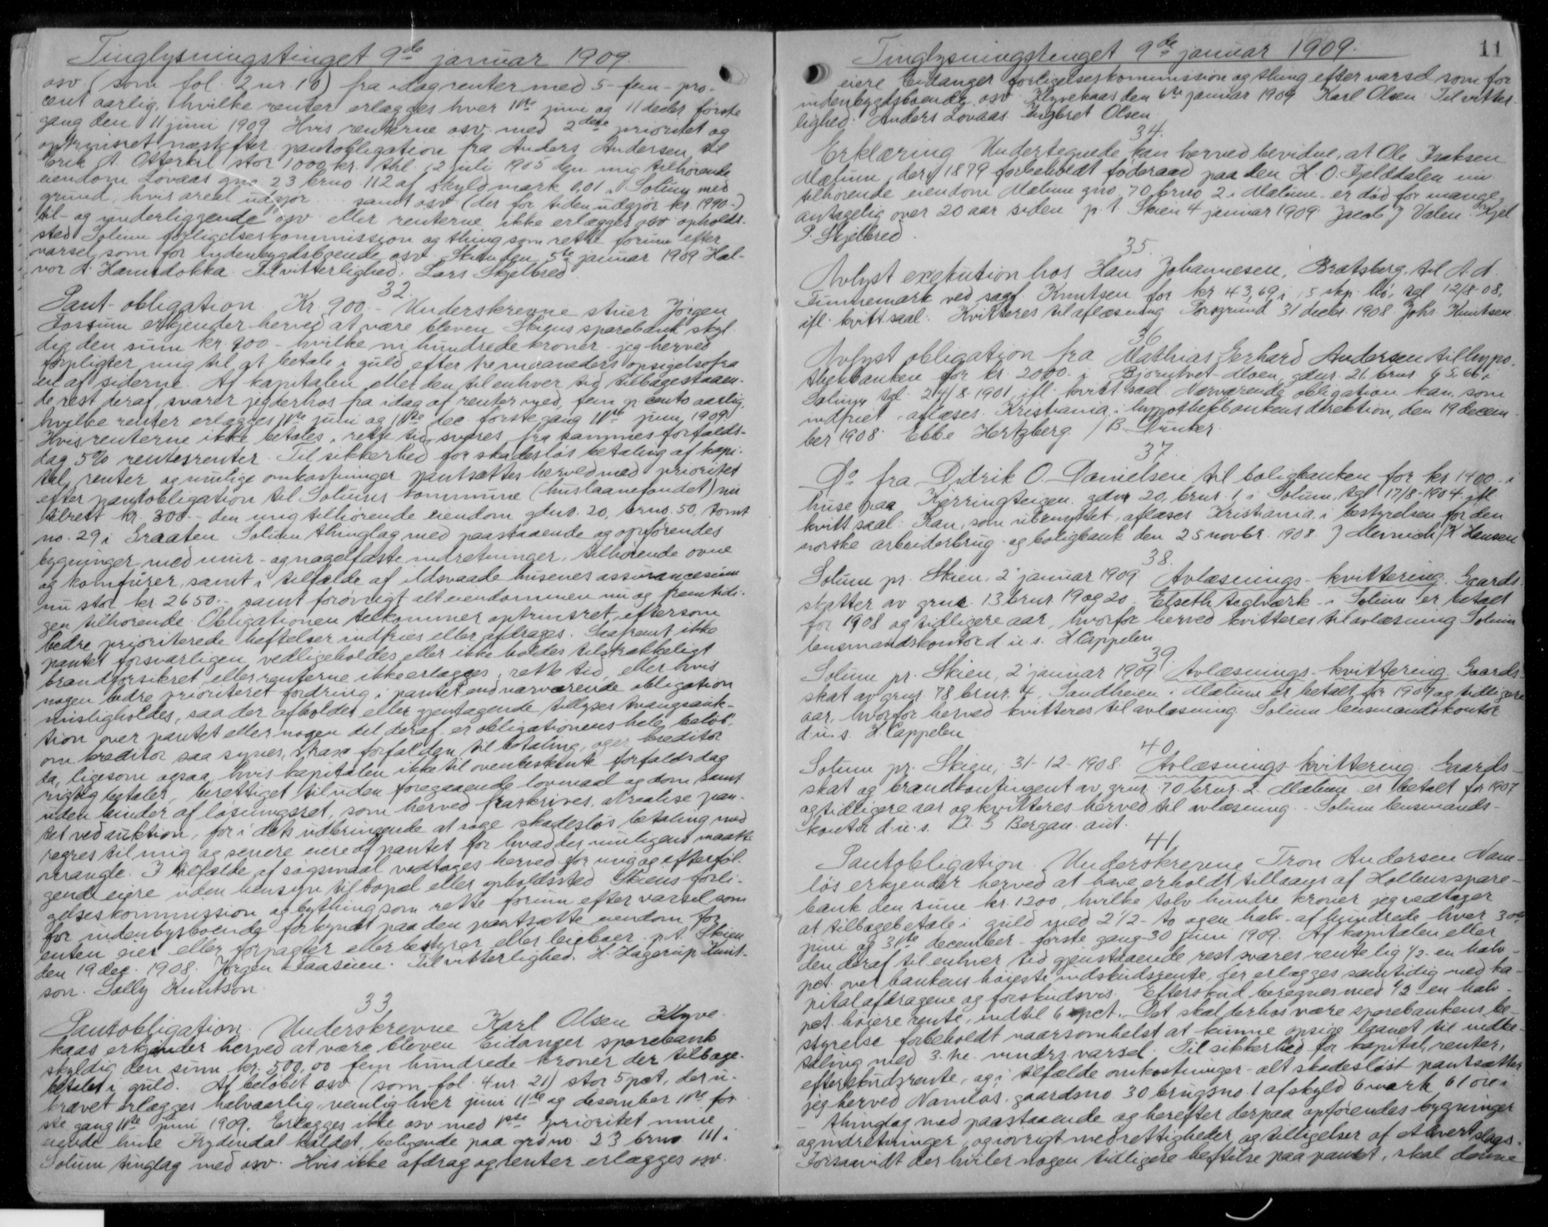 Tinglysningstinget 9de januar 1909
osv (som fol. 2 nr 16) fra idag renter med 5 - fem - pro-
cent aarlig, hvilke renter erlægges hver 11te juni og 11 decbr første
gang den 11 juni 1909. Hvis renterne osv. med 2den prioritet og
optrinsret næstefter pantobligation fra Anders Andersen til
Erik A Otterkil stor 1000 kr. thl. 12 juli 1905 den mig tilhørende
eiendom Lovaas gno 23 brno 112 af skyld mark 0,01 i Solum med
grund, hvis areal udgjør samt osv (der for tiden udgjør kr 1940.-)
til- og underliggende osv eller renterne ikke erlægges osv opholds-
sted Solum forligelseskommission og thing som rette forum efter
varsel som for indenbygdsboende osv. Skien den 5te januar 1909 Hal-
vor A. Hamdokka Til vitterlighed: Lars Skjelbred
32
Pant-obligation Kr 900.- Underskrevne stuer Jørgen
Fossum erkjender herved at være bleven Skiens sparebank skyl-
dig den sum kr. 900 - hvilke ni hundrede kroner - jeg herved
forpligter mig til at betale i guld efter tre maaneders opsigelse fra
en af siderne. Af kapitalen eller den til enhver tid tilbagestaaen-
de rest deraf svarer jeg derhos fra idag af renter med fem pcento aarlig
hvilke renter erlægges 11te juni og 11te dec første gang 11te juni 1909.
Hvis renterne ikke betales i rette tid svares fra sammes forfalds-
dag 5% rentesrenter. Til sikkerhed for skadesløs betaling af kapi-
tal, renter og mulige omkostninger pantsættes herved med prioritet
efter pantobligation til Solums kommune (huslaanefondet) nu
tilrest kr. 300.- den mig tilhørende eiendom gdno. 20, brno. 50, tomt
no. 29 i Graaten Solum thinglag med paastaaende og opførendes
bygninger med mur- og nagelfaste indretninger, tilhørende ovne
og komfurer, samt i tilfælde af ildsvaade husenes assurancesum
nu stor kr. 2650.- samt forøvrigt alt eiendommen nu og fremtidi-
gen tilhørende. Obligationen tilkommer optrinsret, eftersom
bedre prioriterede heftelser indfries eller afdrages. Saafremt ikke
pantet forsvarligen vedligeholdes eller ikke holdes tilstrækkeligt
brandforsikret eller renterne ikke erlægges i rette tid, eller hvis
nogen bedre prioriteret fordring i pantet end nærværende obligation
misligholdes, saa der afholdes eller gjentagende tillyses tvangsauk-
tion over pantet eller nogen del deraf, er obligationens hele beløb,
om kreditor saa synes, strax forfalden til betaling, og er kreditor
da, ligesom ogsaa, hvis kapitalen ikke til ovenbestemte forfaldsdag
rigtig betales, berettiget til uden foregaaende lovmaal og dom samt
uden hinder af løsningsret, som herved fraskrives, at realise pan-
tet ved auktion, for i dets udbringende at søge skadesløs betaling med
regres til mig og senere eiere af pantet for hvad der muligens maatte
mangle. I tilfælde af søgsmaal vedtages herved for mig og efterføl-
gende eiere uden hensyn til bopæl eller opholdssted Skiens forli-
gelseskommission og bything som rette forum efter varsel som
for indenbysboende forkyndt paa den pantsatte eiendom for
enten eier eller forpagter eller bestyrer eller leieboer. p.t. Skien
den 19 dec. 1908. Jørgen Klaasuen. Til vitterlighed: H. Hagerup Knut-
son. Sally Knutson
33
Pantobligation Underskrevne Karl Olsen Klyve-
kaas erkjender herved at være bleven Eidanger sparebank
skyldig den sum kr. 500,00 fem hundrede kroner der tilbage-
betales i guld. Af beløbet osv (som fol. 4 nr. 21) stor 5 pct, der u-
krævet erlægges halvaarlig nemlig hver juni 11te og desember 11te før-
ste gang 11te juni 1909. Erlægges ikke osv med 1ste prioritet mine
eiende huse Frydendal kaldet, beligende paa grdno 23 brno 111 i
Solum tinglag med osv. Hvis ikke afdrag og renter erlægges osv.
Tinglysningstinget 9de januar 1909. 11
eiere Eidanger forligelseskommission og thing efter varsel som for
indenbygdsboende osv. Klyvekaas den 6te januar 1909 Karl Olsen Til vitter-
lighed: Anders Lovaas Engbret Olsen
34.
Erklæring Undertegnede kan herved bevidne, at Ole Isaksen
Mælum, der i 1879 forbeholdt føderaad paa den H. O. Gjelddalen nu
tilhørende eiendom Mælum gno. 70 brno 2 i Mælum er død for mange,
antagelig over 20 aar siden p.t. Skien 4 januar 1909 Jacob J Valen Kjel
P. Skjelbred
35.
Avlyst exekution hos Hans Johannesen, Bratsberg, til A.d.
Simmemark ved sagf. Knutsen for kr 43,69 i 5 skp. tgl. 12/8-08.
ifl. kvitt saal. Kvitteres til aflæsning Porsgrund 31 decbr. 1908 Johs. Knutsen
36
Avlyst obligation fra Mathias Gerhard Andersen til hypo-
thekbanken for kr. 2000.- i Bjørntvet-Moen, gdnr. 21 brnr 9 & 66 i
Solum tgl. 24/8-1901 ifl. kvitt saal. Nærværende obligation kan som
indfriet aflæses. Kristiania i hypothekbankens direktion, den 19 decem-
ber 1908. Ebbe Hertzberg / B. Dunker
37
Do fra Didrik O. Danielsen til boligbanken for kr 1400.- i
huse paa Kjerringteigen gdnr 20, brnr. 1 i Solum, tgl. 17/8-1904 ifl.
kvitt saal. Kan, som ubenyttet, aflæses Kristiania i bestyrelsen for den
norske arbeiderbrug- og boligbank den 25 novbr. 1908. J Mennich / K Hansen
38.
Solum pr. Skien, 2 januar 1909 Avlæsnings-kvittering. Gaards-
skatter av grnr. 13 brnr 19 og 20 Elseth teglværk i Solum er betalt
for 1908 og tidligere aar, hvorfor herved kvitteres til avlæsning Solum
lensmandskontor d.u.s. H Cappelen
39
Solum pr. Skien, 2 januar 1909 Avlæsnings-kvittering Gaards-
skat av grnr 78 brnr. 4 Sandheien i Mælum er betalt for 1907 og tidligere
aar, hvorfor herved kvitteres til avlæsning Solum lensmandskontor
d.u.s. H Cappelen
40
Solum pr. Skien, 31-12-1908 Avlæsnings-kvittering Gaards-
skat og brandkontingent av grnr 70 brnr. 2 Mælum er betalt for 1907
og tidligere aar og kvitteres herved til avlæsning. Solum lensmands-
kontor d.u.s. B. S Bergan aut.
41.
Pantobligation. Underskrevne Tron Andersen Nam-
løs erkjender herved at have erholdt tillaans af Hollens spare-
bank den sum kr. 1200, hvilke tolv hundre kroner jeg vedtager
at tilbagebetale i guld med 2 1/2 - to og en halv - af hundrede hver 30te
juni og 31te december - første gang 30 juni 1909. Af kapitalen eller
den deraf til enhver tid gjenstaaende rest svares rente lig 1/2 - en halv-
pct. over bankens høieste indskudsrente, der erlægges samtidig med ka-
pitalafdragene og forskudsvis. Efterskud beregnes med 1/2 - en halv-
pct. høiere rente, indtil 6 pct. Det skal derhos være sparebankens be-
styrelse forbeholdt naarsomhelst at kunne opsige laanet til indbe-
taling med 3- tre mndrs varsel. Til sikkerhed for kapital, renter,
efterskudsrente, og i tilfælde omkostninger - alt skadesløst pantsætter
jeg herved Namløs gaardsno. 30 brugsno. 1 af skyld 6 mark 61 øre i
thinglag med paastaaende og herefter derpaa opførendes bygninger
og indretninger, og iøvrigt med rettigheder og tilligelser af ethvert slags.
Forsaavidt der hviler nogen tidligere heftelse paa pantet, skal denne